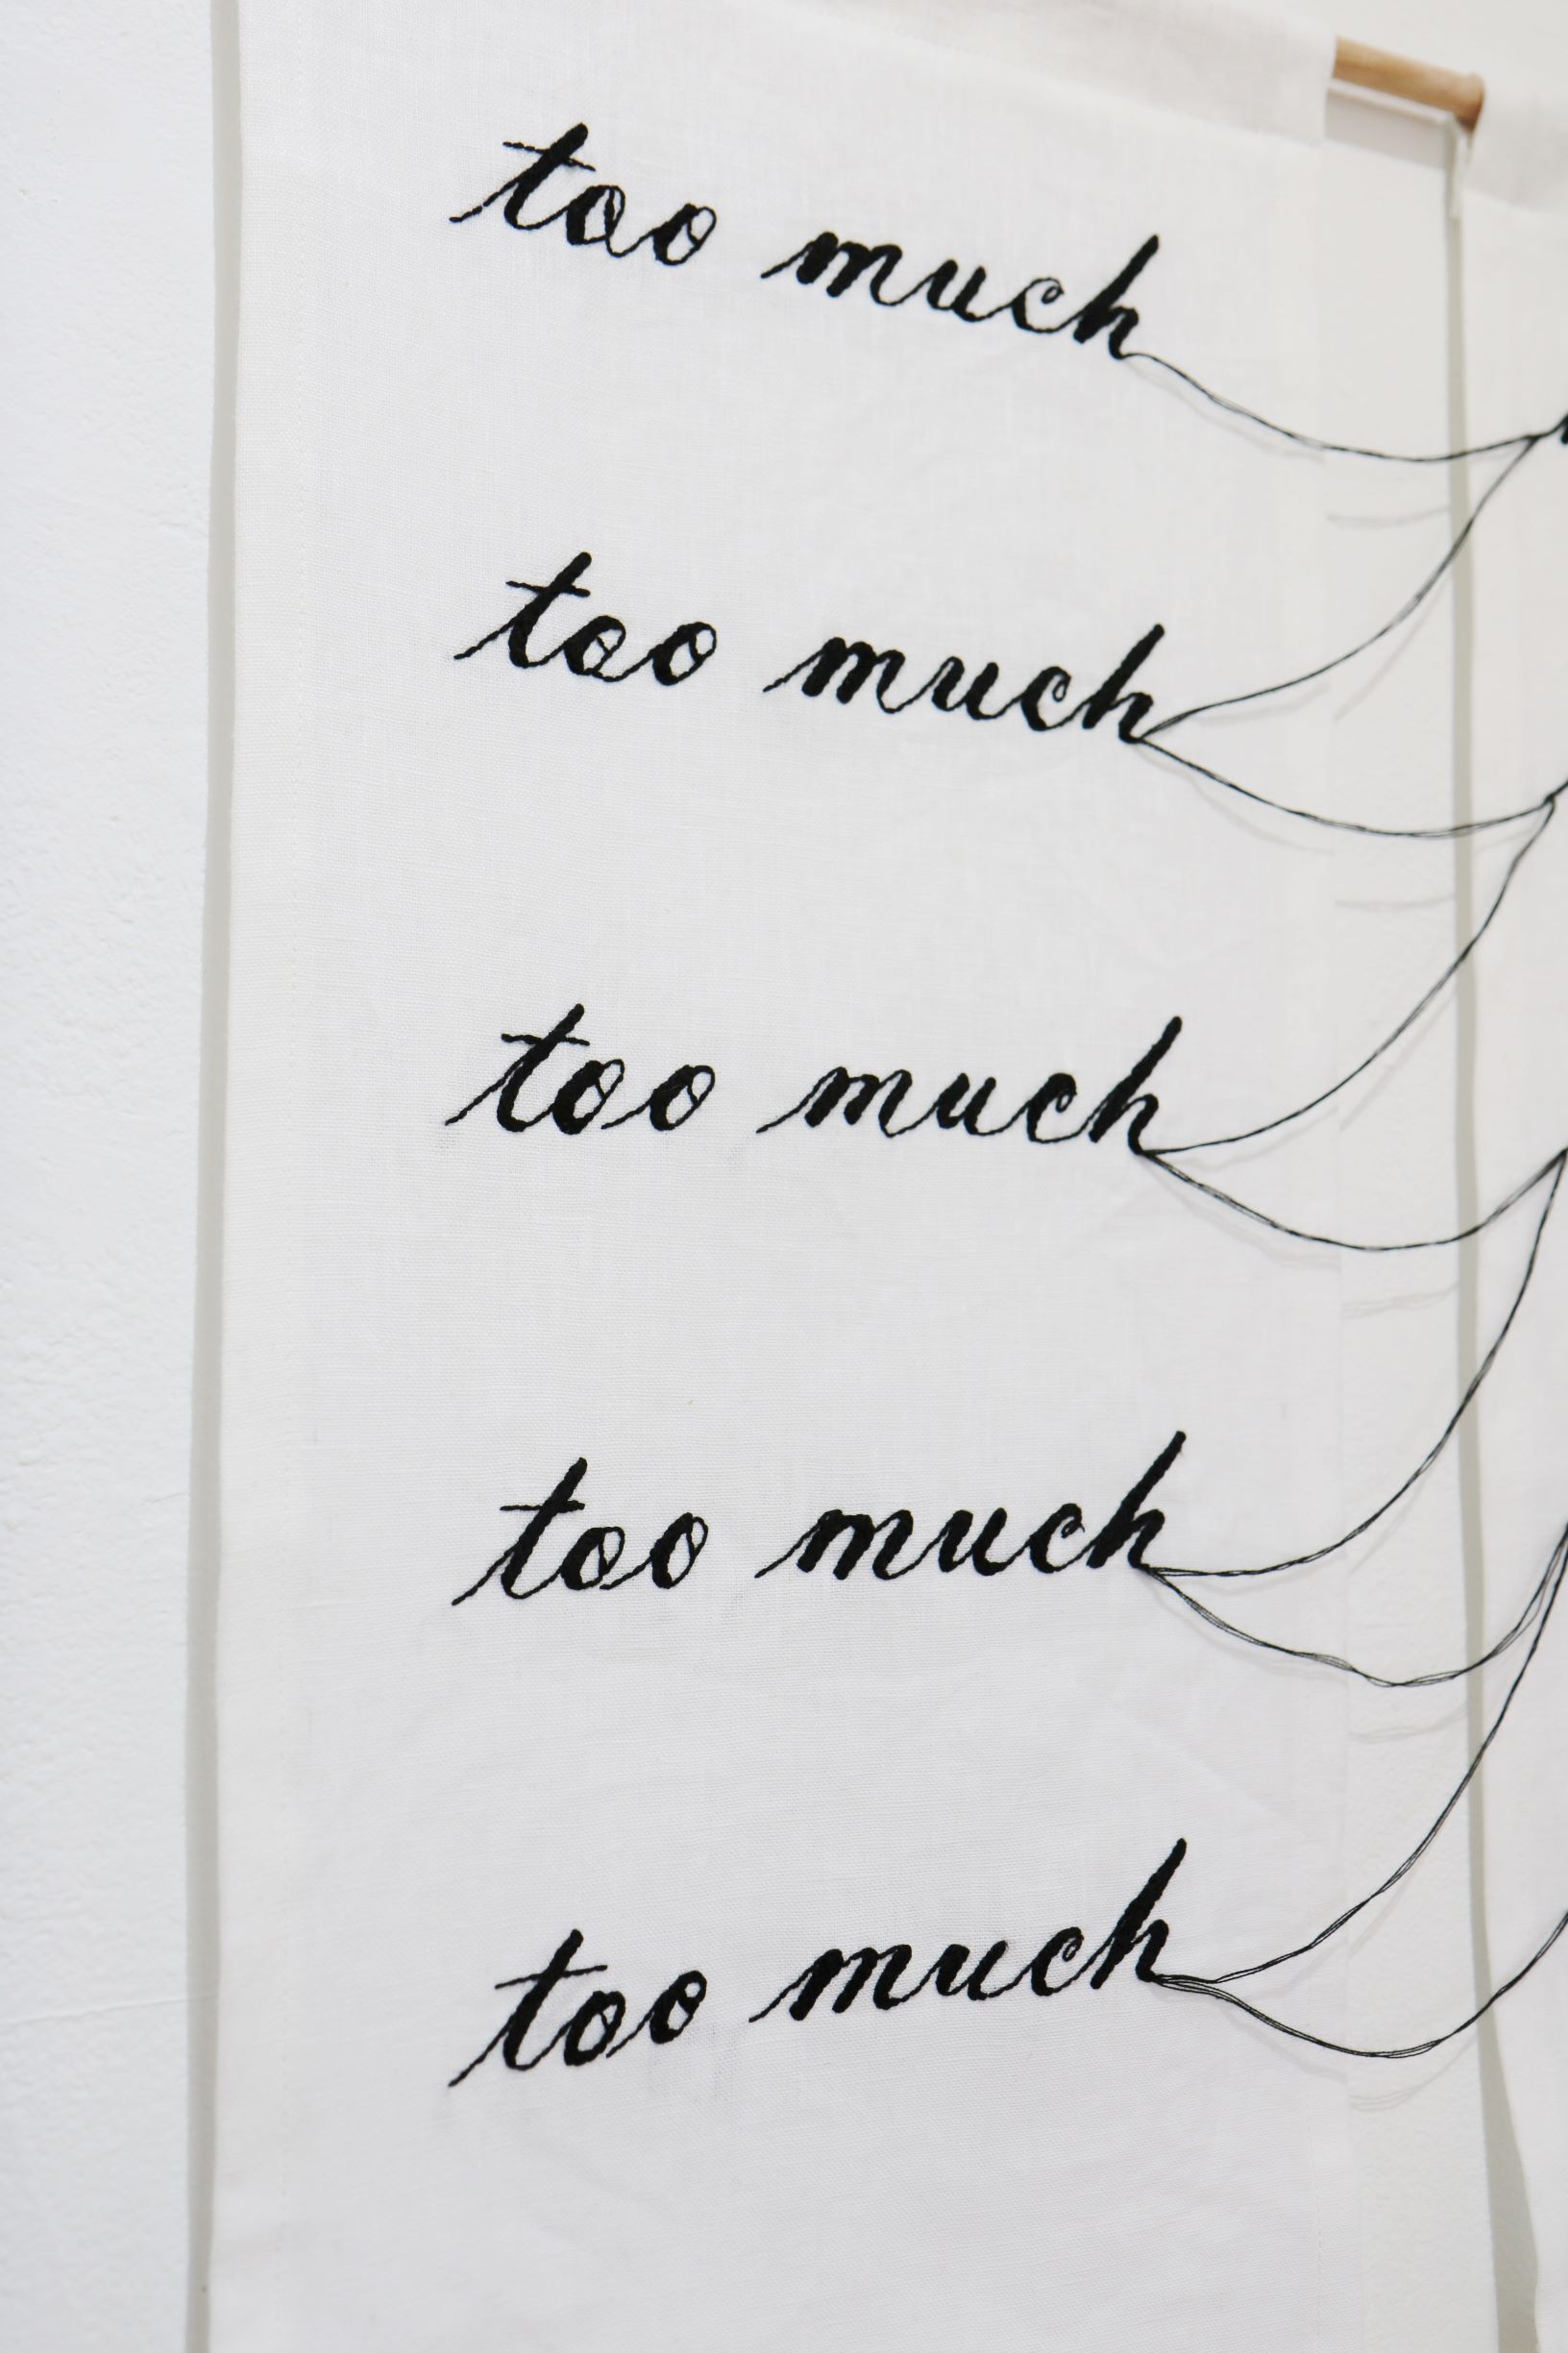 too much
too much
too much
too much
too much